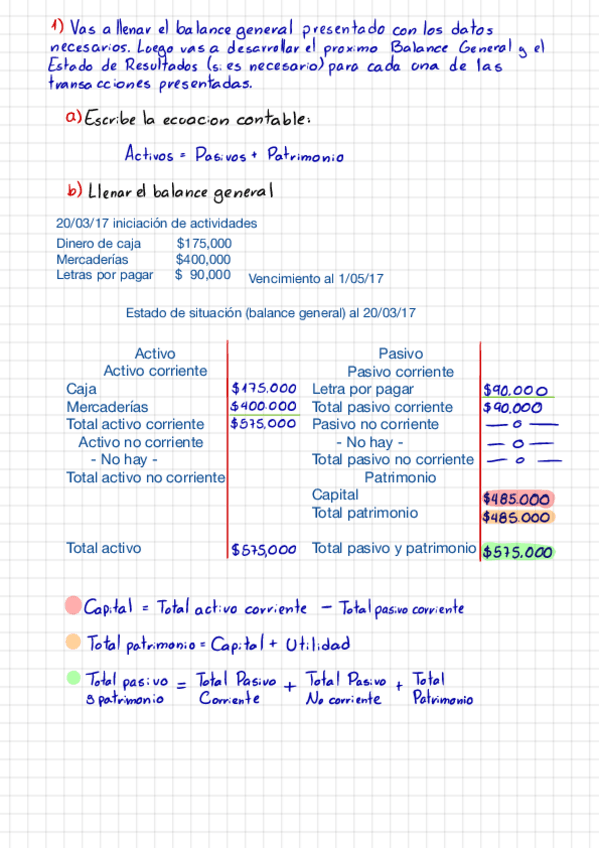 1) Vas a llenar el balance general presentado con los datos
necesarios. Luego vas a desarrollar el proximo Balance General y el
Estado de Resultados (si es necesario) para cada una de las
transacciones presentadas.
a) Escribe la ecuacion contable:
Activos = Pasivos + Patrimonio
b) Llenar el balance general
20/03/17 iniciación de actividades
Dinero de caja $175,000
Mercaderías $400,000
Letras por pagar $ 90,000 Vencimiento al 1/05/17
Estado de situación (balance general) al 20/03/17
Activo Pasivo
Activo corriente Pasivo corriente
Caja $175.000 Letra por pagar $90.000
Mercaderías $400.000 Total pasivo corriente $90.000
Total activo corriente $575,000 Pasivo no corriente — 0 —
Activo no corriente - No hay - — 0 —
- No hay - Total pasivo no corriente — 0 —
Total activo no corriente Patrimonio
Capital $485.000
Total patrimonio $485.000
Total activo $575,000 Total pasivo y patrimonio $575.000
Capital = Total activo corriente - Total pasivo corriente
Total patrimonio = Capital + Utilidad
Total pasivo = Total Pasivo + Total Pasivo + Total
y patrimonio Corriente No corriente Patrimonio